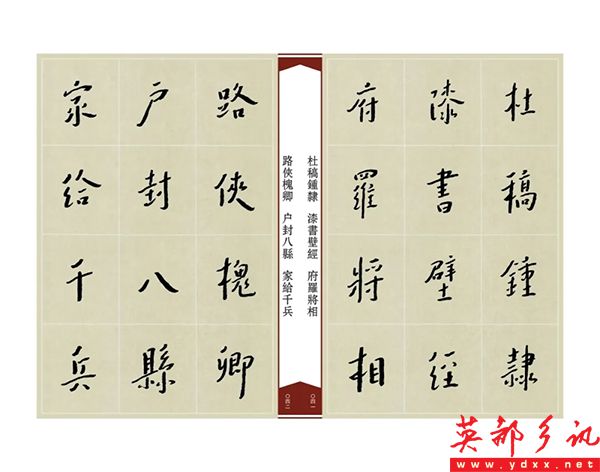 杜稿鍾隸
漆書壁經
府羅將相
路俠槐卿
户封八縣
家給千兵
杜稿鍾隸　漆書壁經　府羅將相
路俠槐卿　户封八縣　家給千兵
〇四一
〇四二
英都乡讯
www.ydxx.net